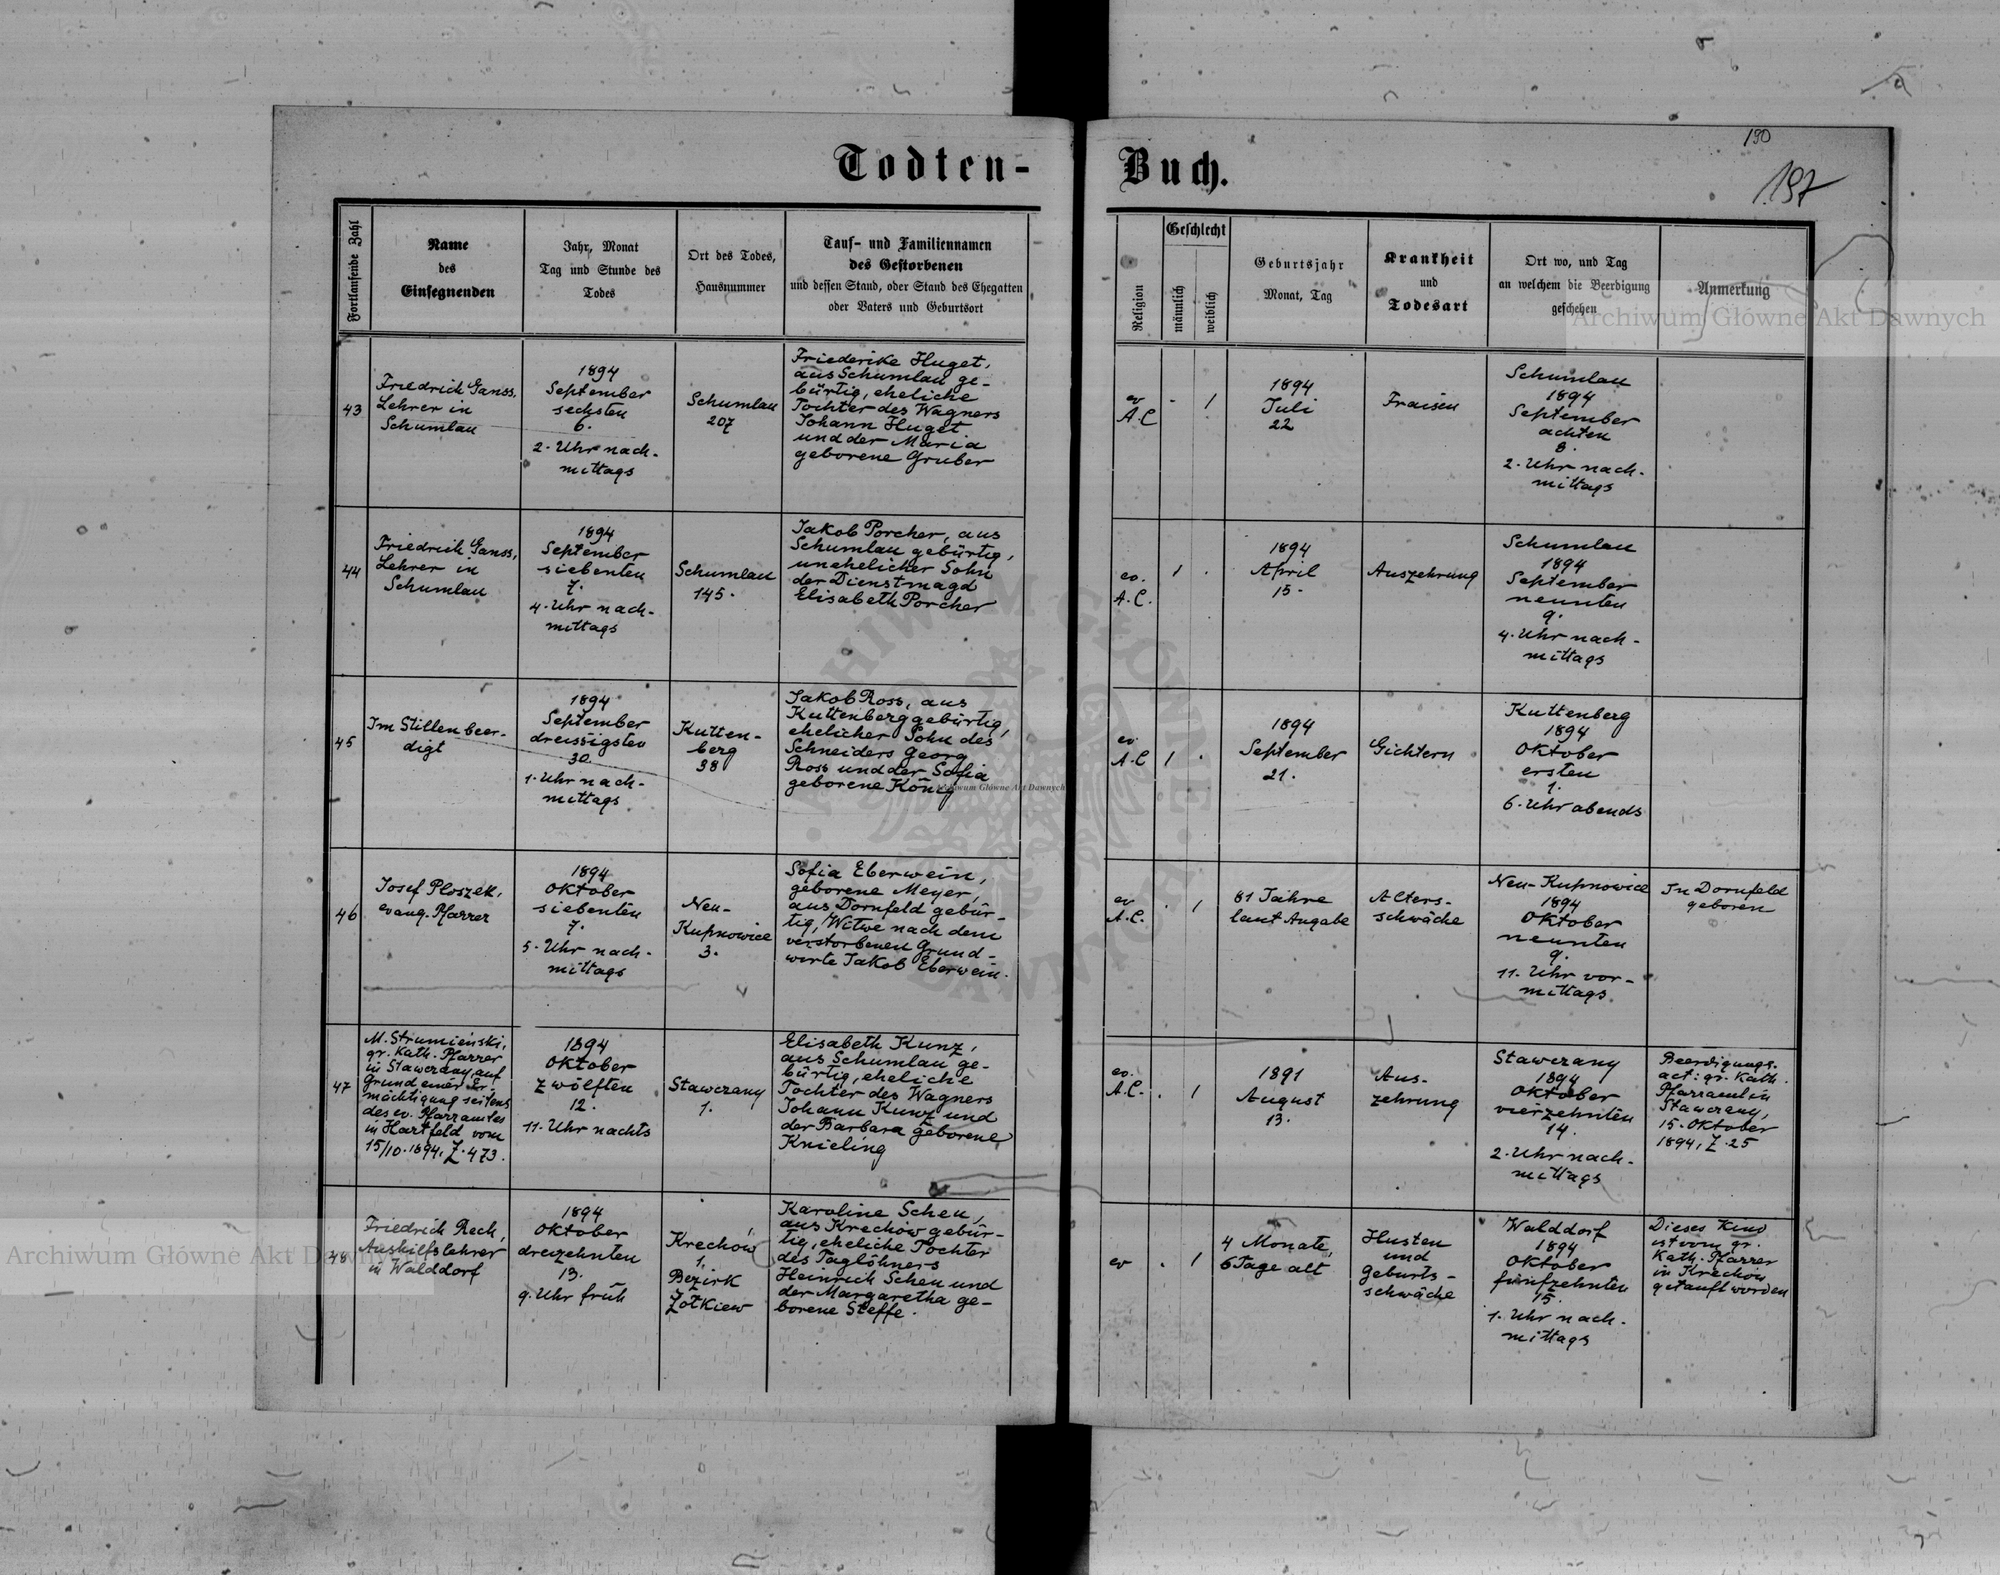 190
197
Todten-
Buch.
Fortlaufende Zahl
Name
des
Einsegnenden
Jahr, Monat
Tag und Stunde des
Todes
Ort des Todes,
Hausnummer
Tauf- und Familiennamen
des Gestorbenen
und dessen Stand, oder Stand des Ehegatten
oder Vaters und Geburtsort
Religion
Geschlecht
männlich
weiblich
Geburtsjahr
Monat, Tag
Krankheit
und
Todesart
Ort wo, und Tag
an welchem die Beerdigung
geschehen
Anmerkung
Archiwum Główne Akt Dawnych
43
Friedrich Ganss,
Lehrer in
Schumlau
1894
September
sechsten
6.
2. Uhr nach-
mittags
Schumlau
207
Friederike Huget,
aus Schumlau ge-
bürtig, eheliche
Tochter des Wagners
Johann Huget
und der Maria
geborene Gruber
ev
A.C
- 1
1894
Juli
22
Fraisen
Schumlau
1894
September
achten
8.
2. Uhr nach-
mittags
44
Friedrich Ganss,
Lehrer in
Schumlau
1894
September
siebenten
7.
4. Uhr nach-
mittags
Schumlau
145.
Jakob Porcher, aus
Schumlau gebürtig,
unehelicher Sohn
der Dienstmagd
Elisabeth Porcher
ev.
A.C.
1 .
1894
April
15.
Auszehrung
Schumlau
1894
September
neunten
9.
4. Uhr nach-
mittags
45
Im Stillen beer-
digt
1894
September
dreissigsten
30.
1. Uhr nach-
mittags
Kutten-
berg
38
Jakob Ross, aus
Kuttenberg gebürtig,
ehelicher Sohn des
Schneiders Georg
Ross und der Sofia
geborene König
Archiwum Główne Akt Dawnych
ev.
A.C
1 .
1894
September
21.
Gichtern
Kuttenberg
1894
Oktober
ersten
1.
6. Uhr abends
46
Josef Ploszek,
evang. Pfarrer
1894
Oktober
siebenten
7.
5. Uhr nach-
mittags
Neu-
Kupnowice
3.
Sofia Eberwein,
geborene Meyer,
aus Dornfeld gebür-
tig, Witwe nach dem
verstorbenen Grund-
wirte Jakob Eberwein.
ev
A.C.
. 1
81 Jahre
laut Angabe
Alters-
schwäche
Neu-Kupnowice
1894
Oktober
neunten
9.
11. Uhr vor-
mittags
In Dornfeld
geboren
47
M. Strumieński,
gr. Kath. Pfarrer
in Stawczany auf
Grund einer Er-
mächtigung seitens
des ev. Pfarramtes
in Hartfeld vom
15/10.1894, Z.473.
1894
Oktober
zwölften
12.
11. Uhr nachts
Stawczany
1.
Elisabeth Kunz,
aus Schumlau ge-
bürtig, eheliche
Tochter des Wagners
Johann Kunz und
der Barbara geborene
Knieling
ev.
A.C.
. 1
1891
August
13.
Aus-
zehrung
Stawczany
1894
Oktober
vierzehnten
14.
2. Uhr nach-
mittags
Beerdigungs-
act: gr. Kath.
Pfarramt in
Stawczany,
15. Oktober
1894, Z.25
48
Friedrich Rech,
Aushilfslehrer
in Walddorf
1894
Oktober
dreizehnten
13.
9. Uhr früh
Krechów
1.
Bezirk
Żółkiew
Karoline Scheu,
aus Krechów gebür-
tig, eheliche Tochter
des Taglöhners
Heinrich Scheu und
der Margaretha ge-
borene Steffe.
ev
. 1
4 Monate,
6 Tage alt
Husten
und
Geburts-
schwäche
Walddorf
1894
Oktober
fünfzehnten
15.
1. Uhr nach-
mittags
Dieses Kind
ist vom gr.
Kath. Pfarrer
in Krechów
getauft worden
Archiwum Główne Akt Dawnych